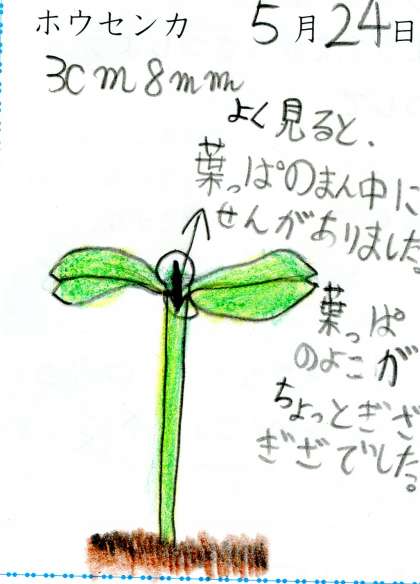 ホウセンカ 5月24日
3cm8mm
よく見ると、
葉っぱのまん中に
せんがありました。
葉っぱ
のよこが
ちょっとぎざ
ぎざでした。